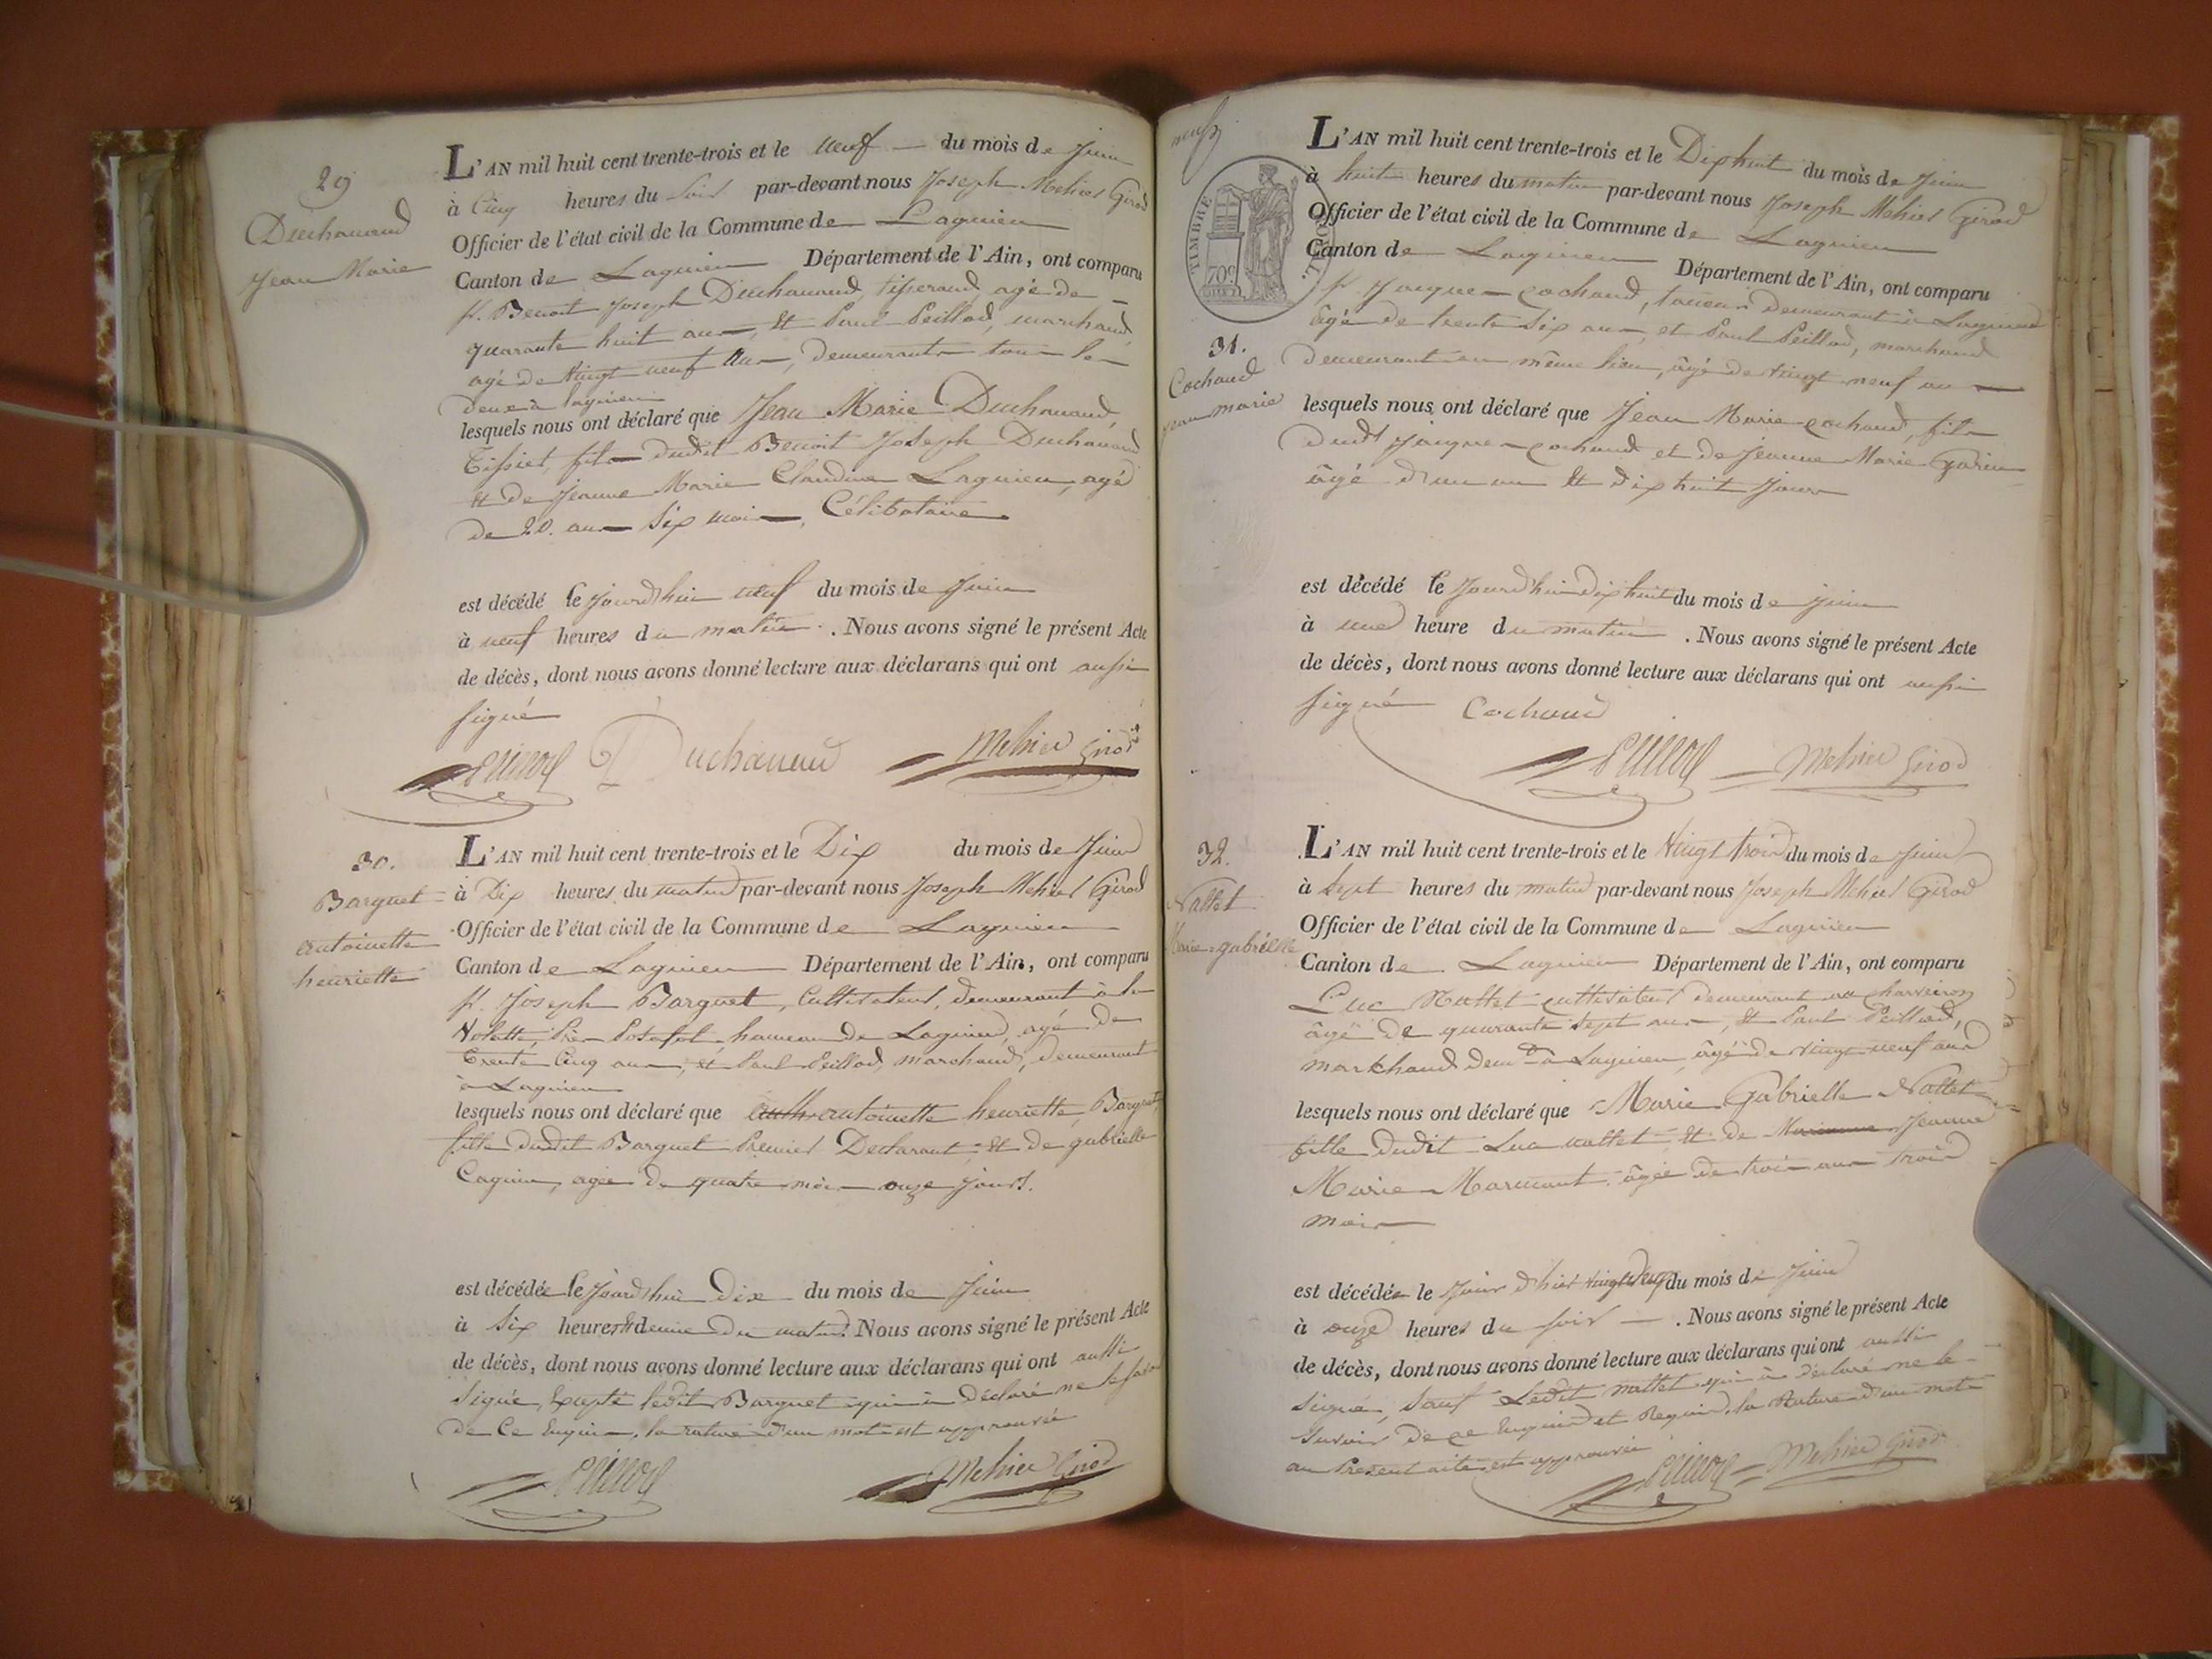 29
Duchanaud
Jean Marie
L'AN mil huit cent trente-trois et le neuf du mois de Juin
à Cinq heures du soir par-devant nous Joseph Mehier Girod
Officier de l'état civil de la Commune de Lagnieu
Canton de Lagnieu Département de l'Ain, ont comparu
Sr. Benoit Joseph Duchanaud, tisserand agé de
quarante huit ans, et Paul Peillod, marchand,
agé de vingt neuf ans, demeurants tous les
deux à lagnieu
lesquels nous ont déclaré que Jean Marie Duchanaud,
fils dudit Benoit Joseph Duchanaud
et de Jeanne Marie Claudine Lagnieu, agé
de 20. ans six mois, Célibataire
est décédé le jourd'hui neuf du mois de Juin
à neuf heures du matin. Nous avons signé le présent Acte
de décès, dont nous avons donné lecture aux déclarans qui ont aussi
signé
Peillod Duchanaud Mehier Girod
30.
Barguet
antoinette
henriette
L'AN mil huit cent trente-trois et le Dix du mois de Juin
à Dix heures du matin par-devant nous Joseph Mehier Girod
Officier de l'état civil de la Commune de Lagnieu
Canton de Lagnieu Département de l'Ain, ont comparu
Sr. Joseph Barguet, Cultivateur, demeurant à la
hameau de Lagnieu, agé de
trente Cinq ans, et Paul Peillod, marchand, demeurant
à Lagnieu
lesquels nous ont déclaré que antoinette henriette Barguet,
fille dudit Barguet Premier Déclarant, et de gabrielle
agée de quatre mois onze jours.
est décédée le jourd'hui Dix du mois de Juin
à six heures et demie du matin. Nous avons signé le présent Acte
de décès, dont nous avons donné lecture aux déclarans qui ont aussi
signé, Excepté ledit Barguet qui a déclaré ne le savoir
de Ce Enquis, la rature d'un mot est approuvée
Peillod Mehier Girod
neuf
TIMBRE ROYAL
70c
31.
Cochaud
jean marie
L'AN mil huit cent trente-trois et le Dix huit du mois de Juin
à huit heures du matin par-devant nous Joseph Mehier Girod
Officier de l'état civil de la Commune de Lagnieu
Canton de Lagnieu Département de l'Ain, ont comparu
Sr. Jacques Cochaud, demeurant à Lagnieu
âgé de trente six ans, et Paul Peillod, marchand
demeurant au même lieu, âgé de vingt neuf ans
lesquels nous ont déclaré que Jean Marie Cochaud, fils
dudt Jacques Cochaud et de Jeanne Marie Garin
âgé d'un an et dix huit jours
est décédé le jourd'hui dix huit du mois de Juin
à une heure du matin. Nous avons signé le présent Acte
de décès, dont nous avons donné lecture aux déclarans qui ont aussi
signé Cochaud
Peillod Mehier Girod
32.
Nattet
Marie=gabrielle
L'AN mil huit cent trente-trois et le vingt trois du mois de Juin
à sept heures du matin par-devant nous Joseph Mehier Girod
Officier de l'état civil de la Commune de Lagnieu
Canton de Lagnieu Département de l'Ain, ont comparu
Luc Nattet cultivateur demeurant au charveiron
âgé de quarante sept ans, et Paul Peillod,
marchand demt à Lagnieu, âgé de vingt neuf ans
lesquels nous ont déclaré que Marie Gabrielle Nattet
fille dudit Luc nattet et de Jeanne
Marie Marmont, âgée de trois ans trois
mois
est décédée le jour d'hier vingt deux du mois de Juin
à onze heures du soir. Nous avons signé le présent Acte
de décès, dont nous avons donné lecture aux déclarans qui ont aussi
signé, sauf Ledit nattet qui a déclaré ne le
savoir de ce Enquis et Requis. la Rature d'un mot
au Présent acte est approuvée
Peillod Mehier Girod